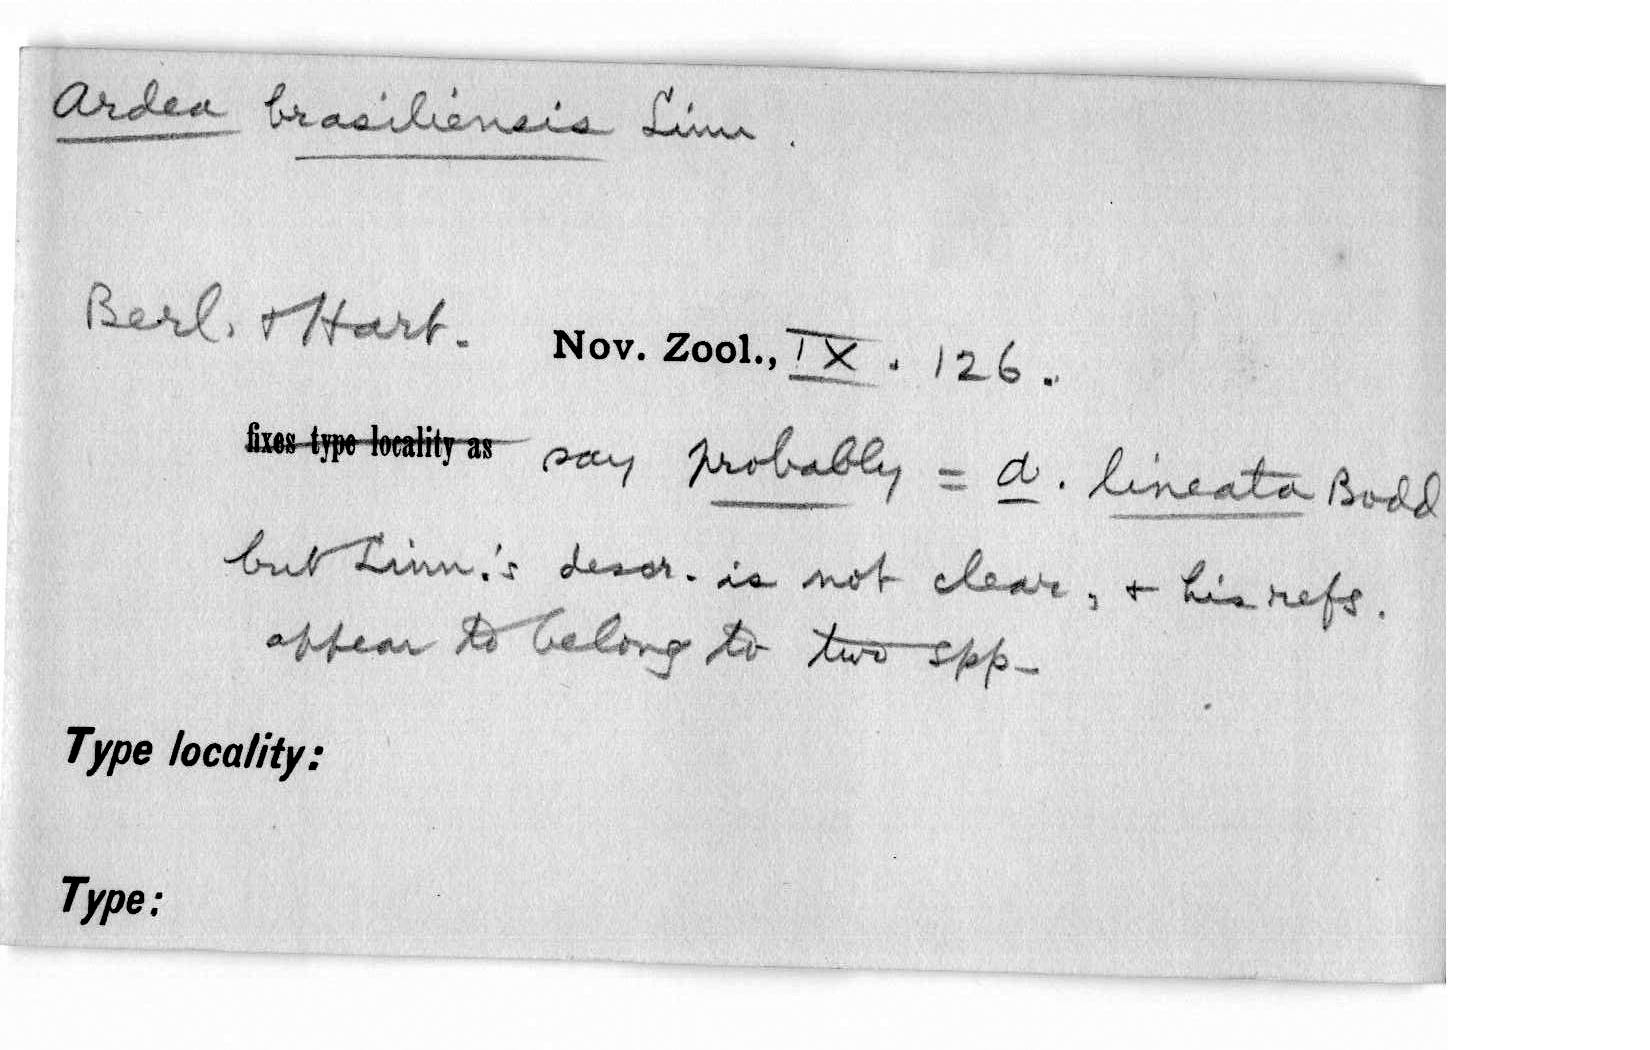 Ardea brasiliensis Linn.
Berl. & Hart. Nov. Zool., IX. 126.
fixes type locality as say probably = A. lineata Bodd
but Linn.'s descr. is not clear, & his refs.
appear to belong to two spp-
Type locality:
Type: